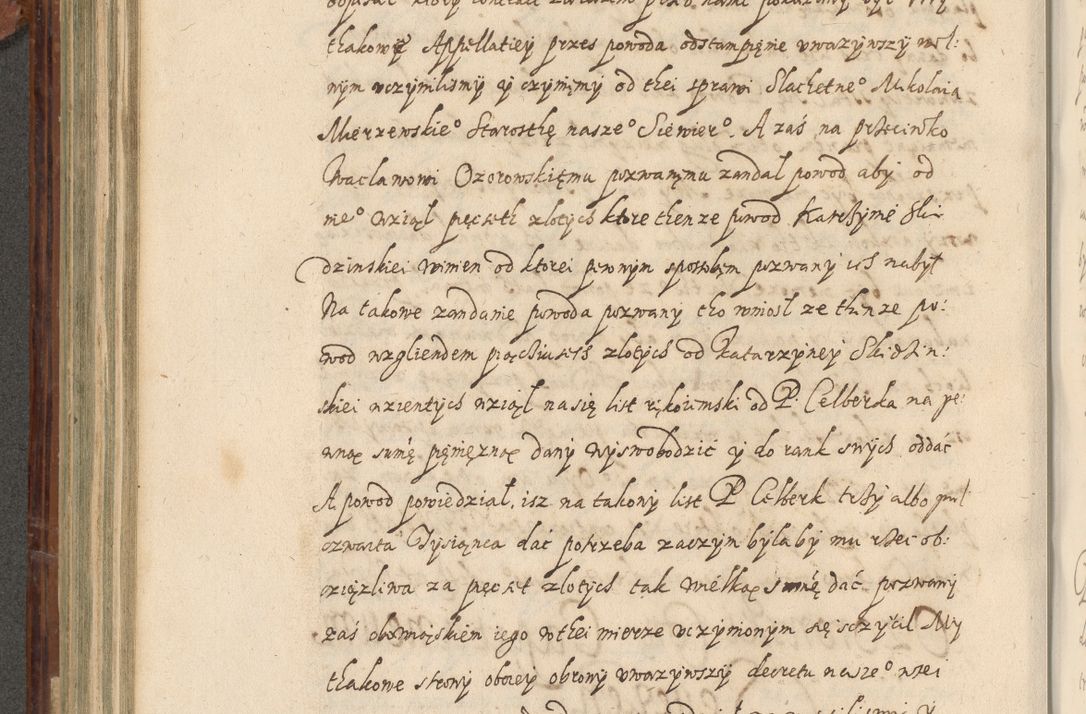 thakowe Appellatiey przes powoda odstampięnie vwazywszy wol:
nym vczynilismy y czynięmy od thei sprawi Slachetne° Mikolaia
Mierzewskie° Starosthę nasze° Siewier°. A zaś na przeciwko
Wacławowi Ozorowskięmu pozwanęmu zandał powod aby od
nie° wziął pięcseth złotych które thenze powod Katrzynie Ski
dzinskiei winien od ktorei pewnym sposobem pozwany ich nabył
Na takowe zandanie powoda pozwany tho wniosł ze thenze po:
wod wzgliendem pięchiuseth złotych od Katarzyney Skidzin:
skiei wzientych wziął na się list rękoimski od P. Celberka na pe:
wnąx sumę pęnięznąx dany wyswobodzić y do rank swych oddać
A powod powiedział, isz na takowy list P Celberk trzy albo puł
czwarta Tysiąnca dać potrzeba zaczym byłaby mu rzec ob:
ciązliwa za pięcset złotych tak wielkąx sumę dać pozwany
zaś obowiązkiem iego w thei mierze vczynionym się sczytil My
thakowe strony oboiey obrony vwazywszy decretu nasze° wzei